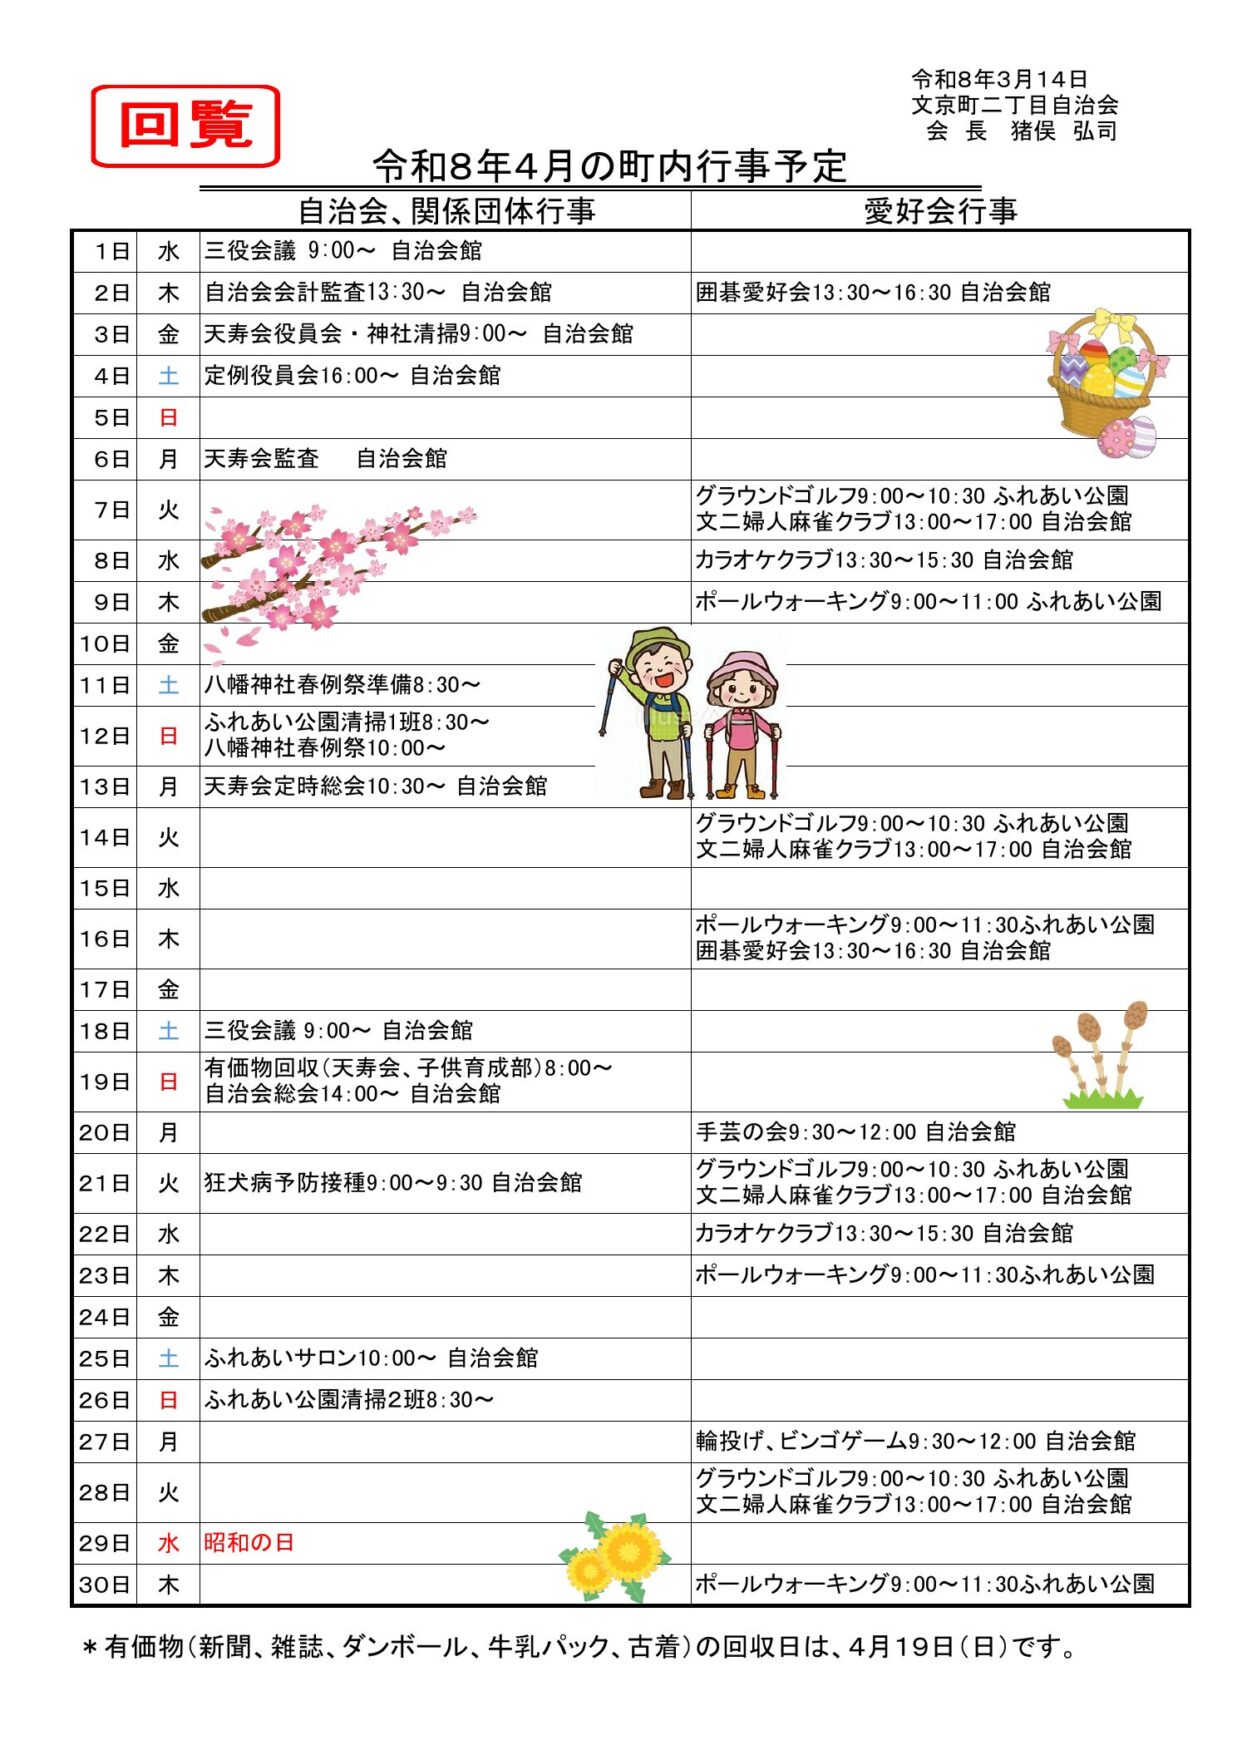 回覧
令和８年３月１４日
文京町二丁目自治会
会　長　猪俣　弘司
令和８年４月の町内行事予定
自治会、関係団体行事　愛好会行事
１日 水 三役会議 9:00～ 自治会館
２日 木 自治会会計監査13:30～ 自治会館 囲碁愛好会13:30～16:30 自治会館
３日 金 天寿会役員会・神社清掃9:00～ 自治会館
４日 土 定例役員会16:00～ 自治会館
５日 日
６日 月 天寿会監査　自治会館
７日 火 グラウンドゴルフ9:00～10:30 ふれあい公園
文二婦人麻雀クラブ13:00～17:00 自治会館
８日 水 カラオケクラブ13:30～15:30 自治会館
９日 木 ポールウォーキング9:00～11:00 ふれあい公園
10日 金
11日 土 八幡神社春例祭準備8:30～
12日 日 ふれあい公園清掃1班8:30～
八幡神社春例祭10:00～
13日 月 天寿会定時総会10:30～ 自治会館
14日 火 グラウンドゴルフ9:00～10:30 ふれあい公園
文二婦人麻雀クラブ13:00～17:00 自治会館
15日 水
16日 木 ポールウォーキング9:00～11:30ふれあい公園
囲碁愛好会13:30～16:30 自治会館
17日 金
18日 土 三役会議 9:00～ 自治会館
19日 日 有価物回収（天寿会、子供育成部）8:00～
自治会総会14:00～ 自治会館
20日 月 手芸の会9:30～12:00 自治会館
21日 火 狂犬病予防接種9:00～9:30 自治会館 グラウンドゴルフ9:00～10:30 ふれあい公園
文二婦人麻雀クラブ13:00～17:00 自治会館
22日 水 カラオケクラブ13:30～15:30 自治会館
23日 木 ポールウォーキング9:00～11:30ふれあい公園
24日 金
25日 土 ふれあいサロン10:00～ 自治会館
26日 日 ふれあい公園清掃２班8:30～
27日 月 輪投げ、ビンゴゲーム9:30～12:00 自治会館
28日 火 グラウンドゴルフ9:00～10:30 ふれあい公園
文二婦人麻雀クラブ13:00～17:00 自治会館
29日 水 昭和の日
30日 木 ポールウォーキング9:00～11:30ふれあい公園
＊有価物（新聞、雑誌、ダンボール、牛乳パック、古着）の回収日は、４月１９日（日）です。